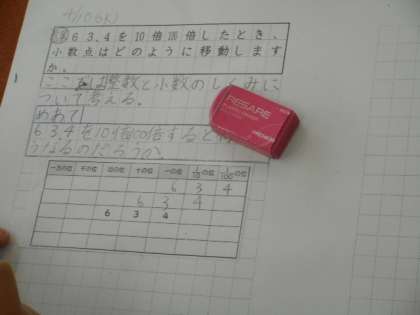 4/10(水)
6 3.4 を 10 倍 100 倍したとき、
小数点はどのように移動します
か。
整数と小数のしくみに
ついて考える。
めあて
6.3.4を10倍100倍すると
うなるのだろうか。
RESARE
一万の位 千の位 百の位 十の位 一の位 1/10の位 1/100の位
6 3 4
6 3 4
6 3 4